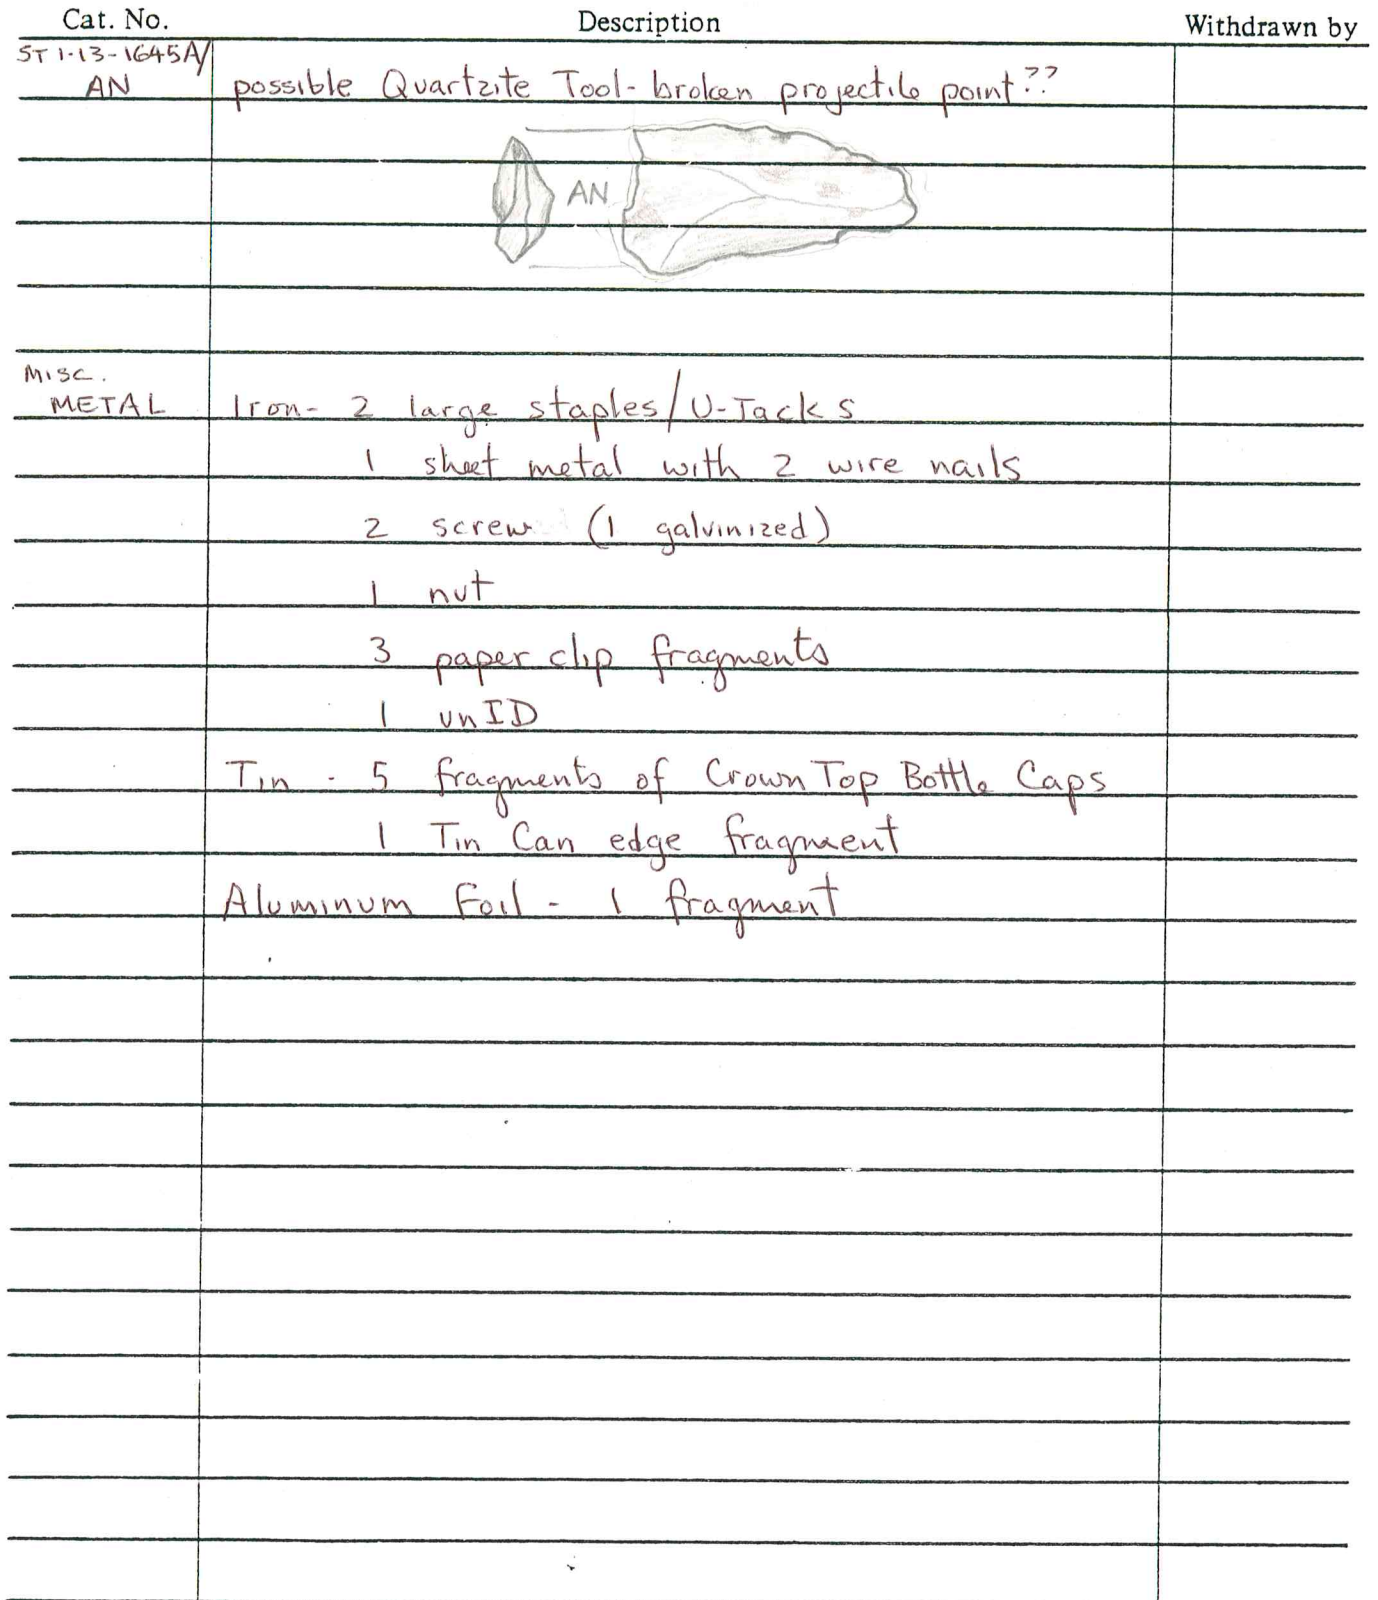 Cat. No. Description Withdrawn by
ST 1-13-1645A/
AN possible Quartzite Tool- broken projectile point??
AN
Misc.
METAL Iron- 2 large staples/U-Tacks
1 sheet metal with 2 wire nails
2 screw (1 galvinized)
1 nut
3 paper clip fragments
1 unID
Tin - 5 fragments of Crown Top Bottle Caps
1 Tin Can edge fragment
Aluminum Foil - 1 fragment